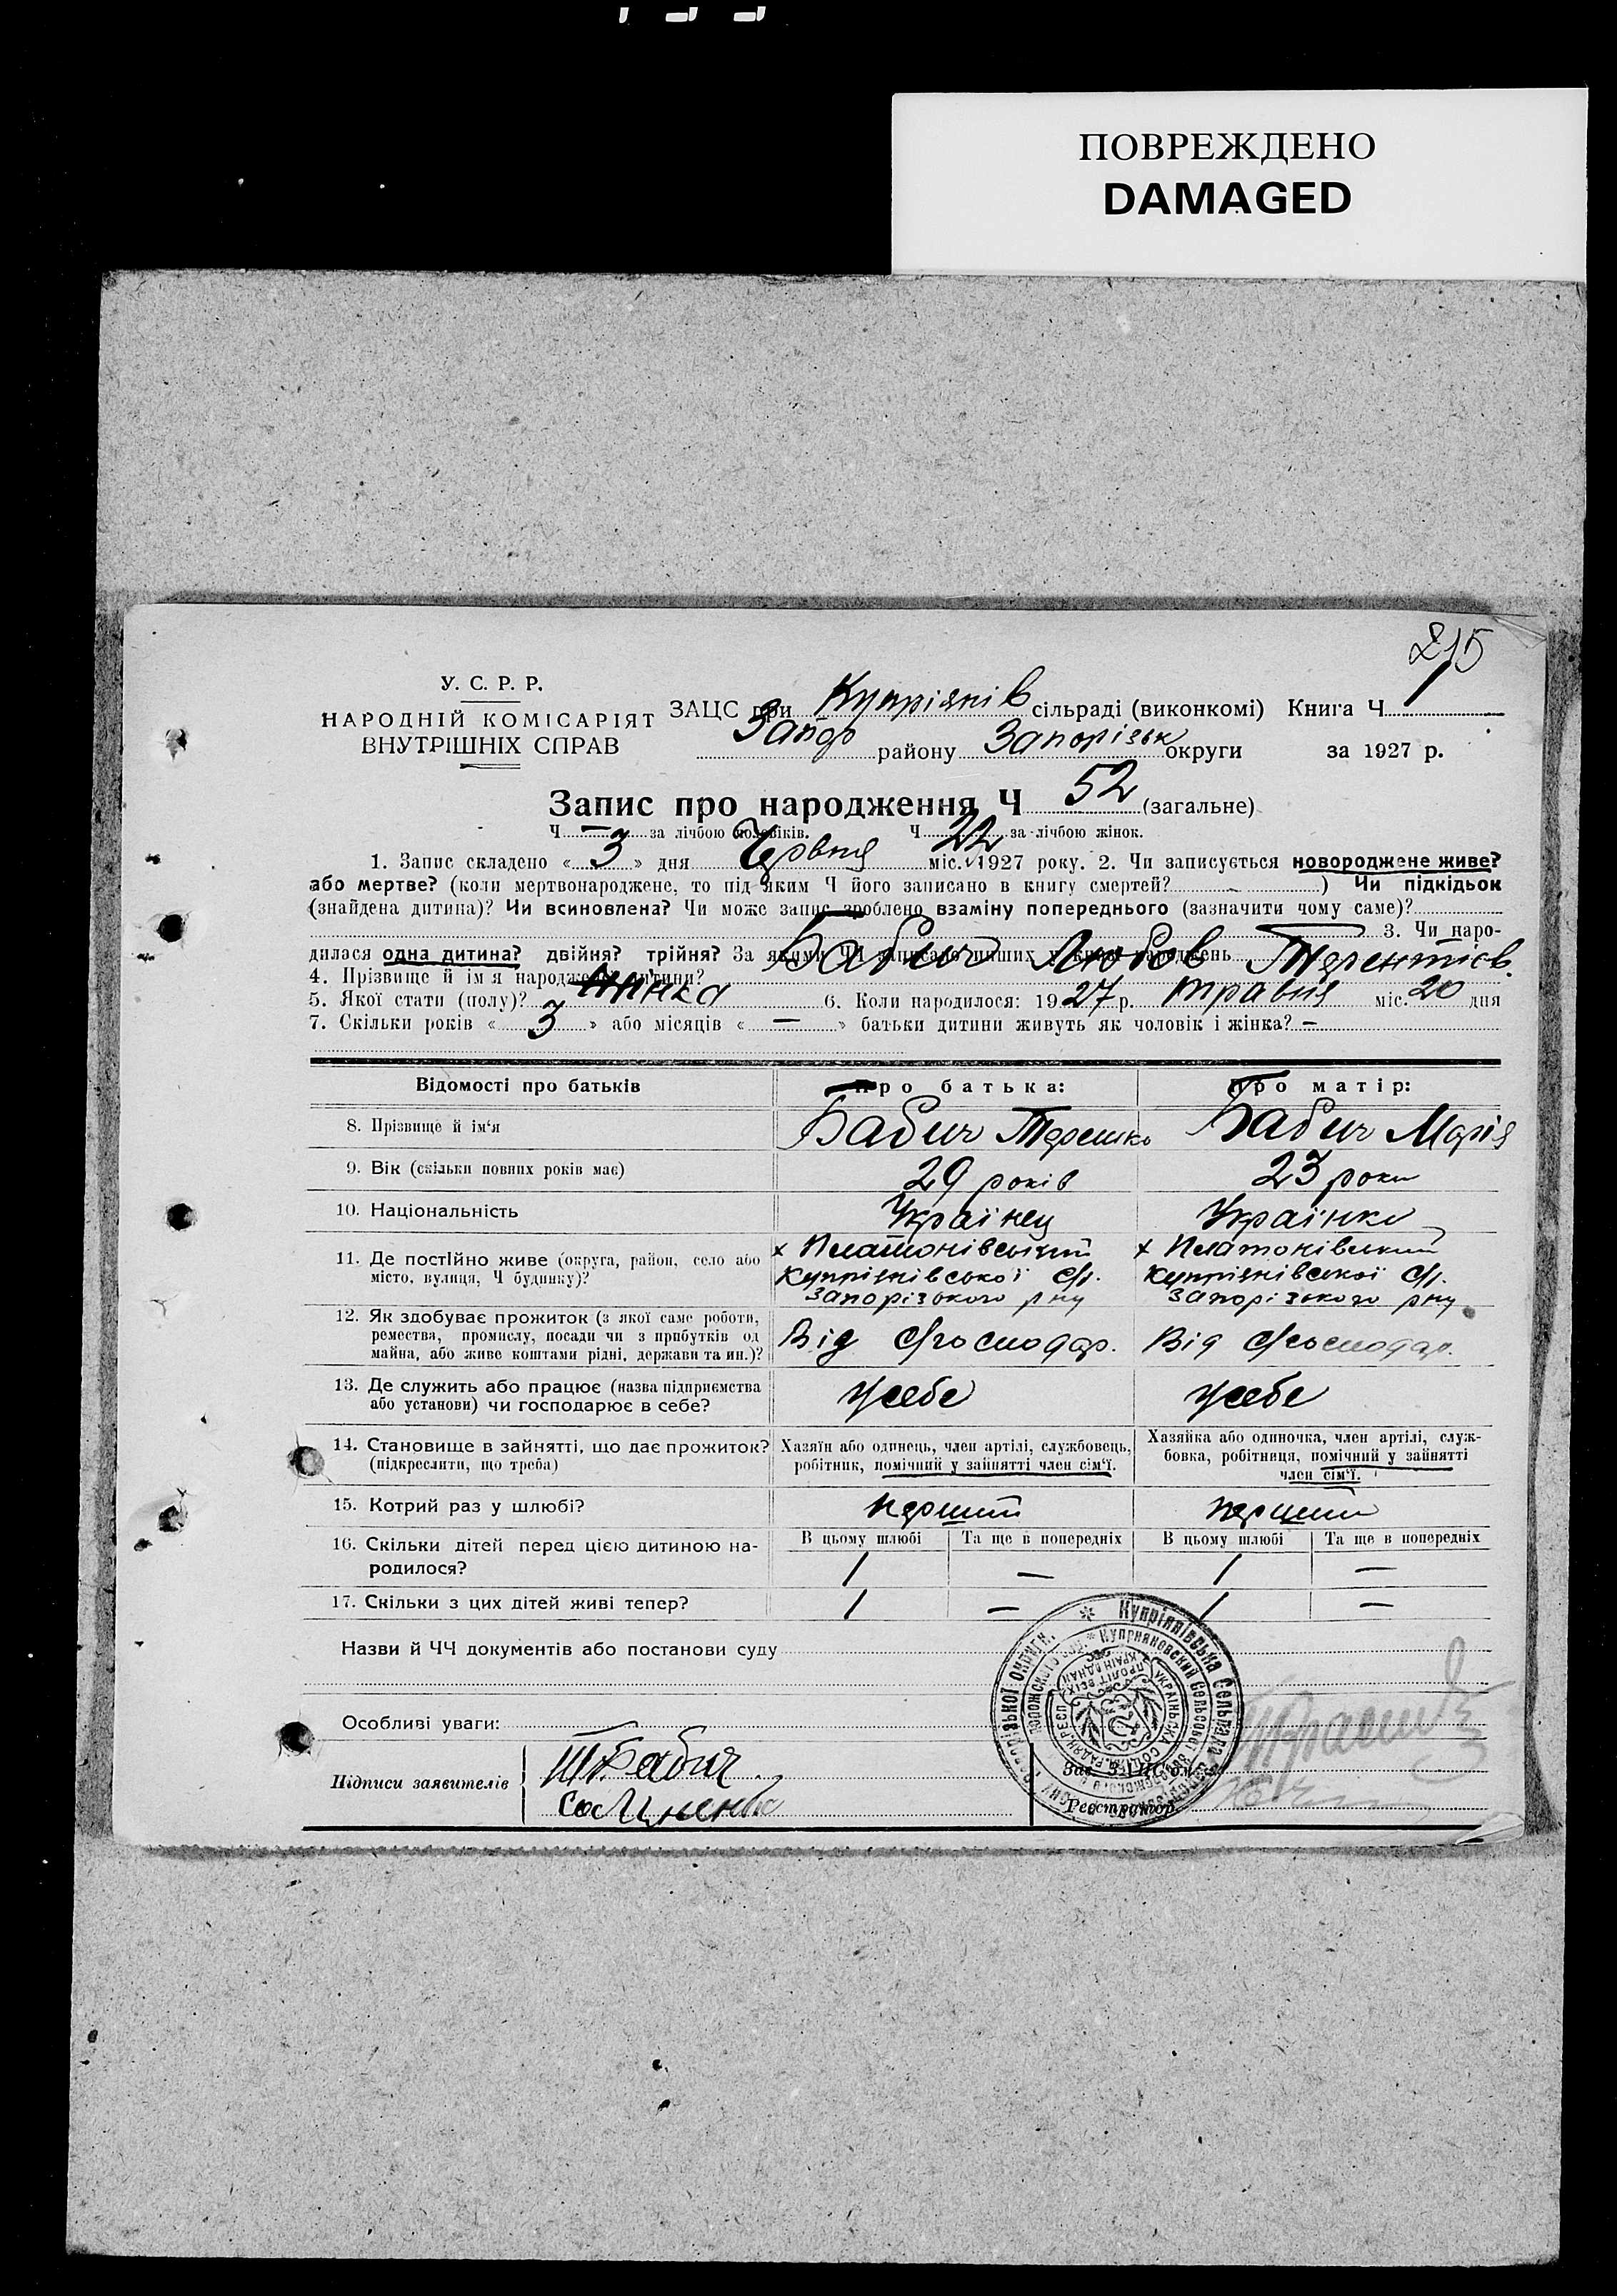 ПОВРЕЖДЕНО
DAMAGED
215
У. С. Р. Р.
НАРОДНІЙ КОМІСАРІЯТ
ВНУТРІШНІХ СПРАВ
ЗАЦС при Купріянів сільраді (виконкомі) Книга Ч
Запор району Запорізьк округи за 1927 р.
Запис про народження Ч 52 (загальне)
Ч — за лічбою чоловіків. Ч 22 за лічбою жінок.
1. Запис складено « 3 » дня Червня міс. 1927 року. 2. Чи записується новороджене живе?
або мертве? (коли мертвонароджене, то під яким Ч його записано в книгу смертей? – ) Чи підкідьок
(знайдена дитина)? Чи всиновлена? Чи може запис зроблено взаміну попереднього (зазначити чому саме)?
3. Чи наро-
дилася одна дитина? двійня? трійня? За якими ЧЧ записано инших у книзі народжень
4. Прізвище й ім'я народженої дитини? Бабич Любов Терентіев.
5. Якої стати (полу)? жінка 6. Коли народилося: 1927 р. травня міс. 20 дня
7. Скільки років « 3 » або місяців « — » батьки дитини живуть як чоловік і жінка? –
Відомості про батьків Про батька: Про матір:
8. Прізвище й ім'я Бабич Терешко Бабич Марія
9. Вік (скільки повних років має) 29 років 23 роки
10. Національність Українец Українка
11. Де постійно живе (округа, район, село або місто, вулиця, Ч будинку)?
х Платонівський х Платонівський
Купріянівської с/р. Купріянівської с/р.
Запорізького р ну Запорізького р ну
12. Як здобуває прожиток (з якої саме роботи,
ремества, промислу, посади чи з прибутків од
майна, або живе коштами рідні, держави та ин.)?
Від с/господар. Від с/господар.
13. Де служить або працює (назва підприємства
або установи) чи господарює в себе?
У себе У себе
14. Становище в зайнятті, що дає прожиток?
(підкреслити, що треба)
Хазяїн або одинець, член артілі, службовець,
робітник, помічний у зайнятті член сім'ї.
Хазяйка або одиночка, член артілі, служ-
бовка, робітниця, помічний у зайнятті
член сім'ї.
15. Котрий раз у шлюбі? перший перший
16. Скільки дітей перед цією дитиною на-
родилося?
В цьому шлюбі Та ще в попередніх В цьому шлюбі Та ще в попередніх
1 — 1 —
17. Скільки з цих дітей живі тепер? 1 — 1 —
Назви й ЧЧ документів або постанови суду
Особливі уваги:
Підписи заявителів
Т. Бабич
Зав. ЗАЦС'ом
Реєстратор
Купріянівська Сельрада
Куприяновский Сельсовет